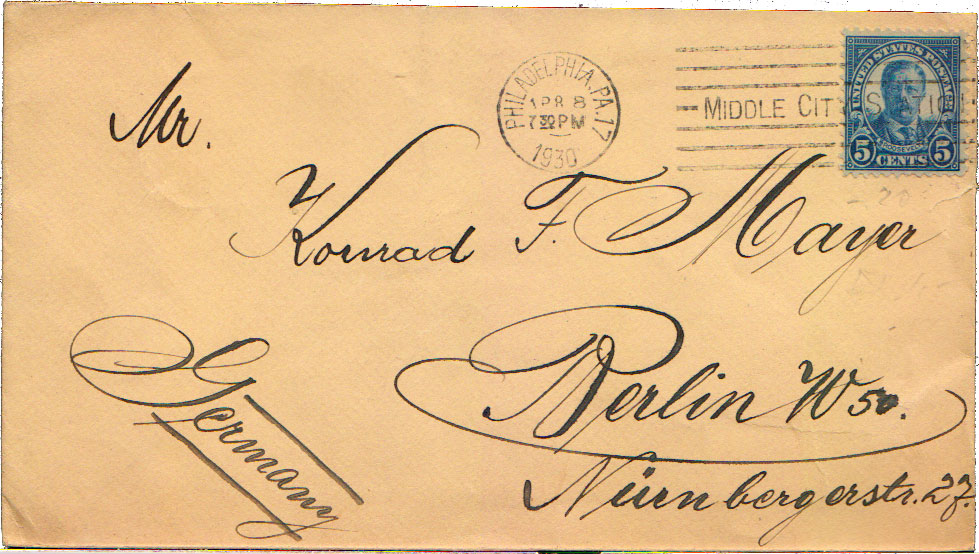 PHILADELPHIA, PA. 17
APR 8
7 30 PM
1930
MIDDLE CITY STATION
UNITED STATES POSTAGE
ROOSEVELT
5 CENTS 5
Mr.
Konrad F. Mayer
Berlin W 50.
Nürnbergerstr. 27.
Germany